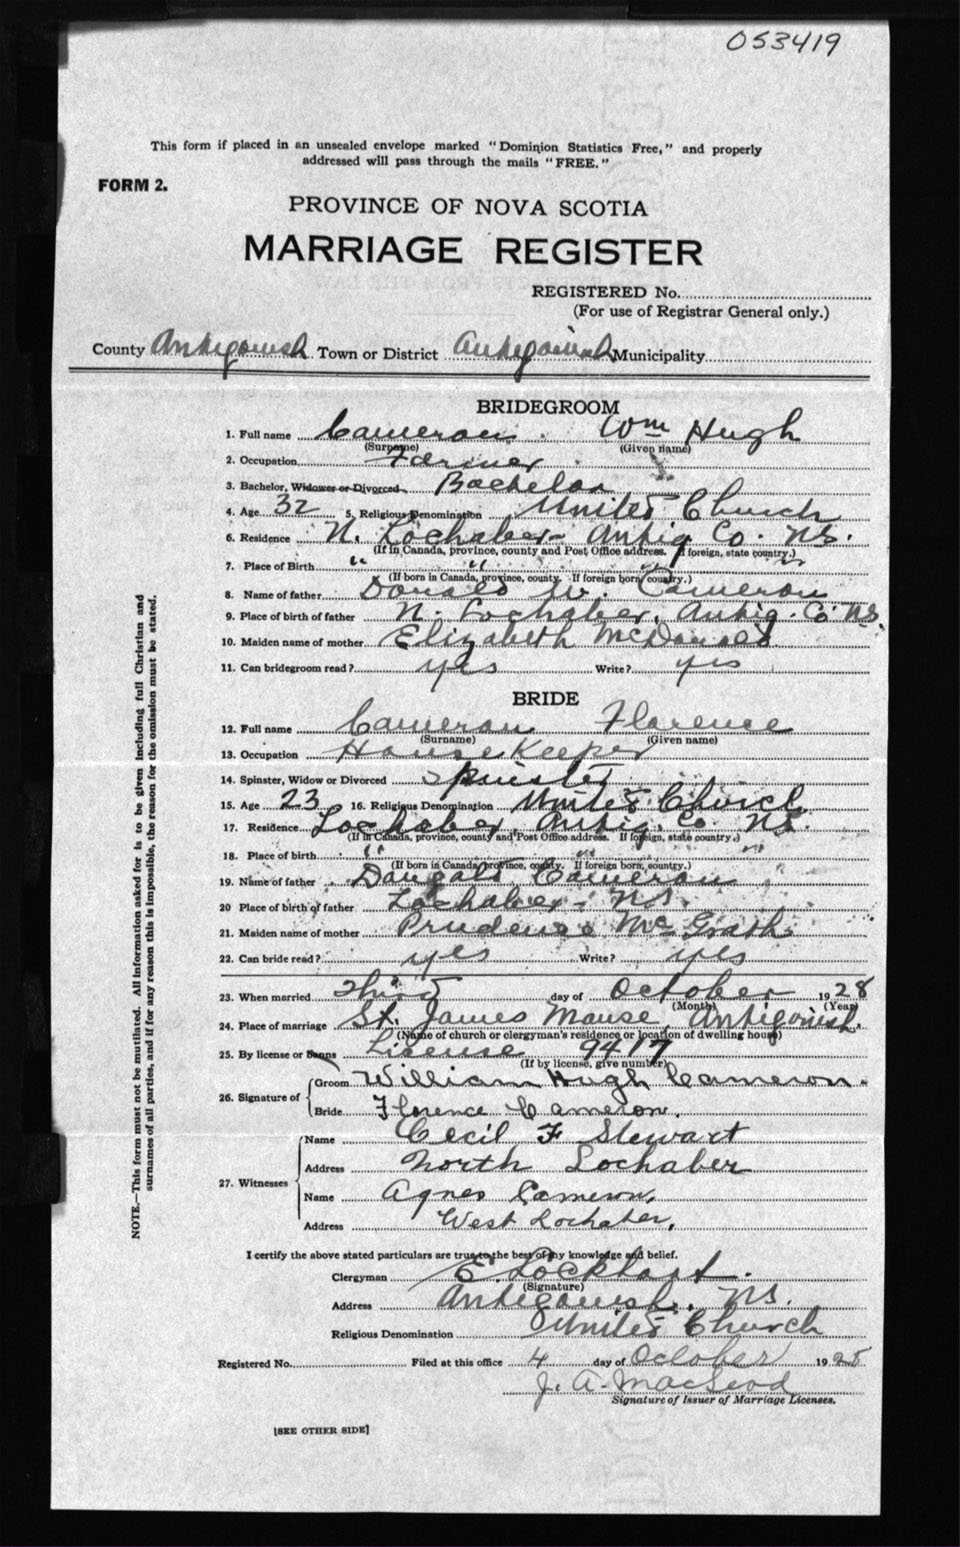 053419
This form if placed in an unsealed envelope marked "Dominion Statistics Free," and properly
addressed will pass through the mails "FREE."
FORM 2.
PROVINCE OF NOVA SCOTIA
MARRIAGE REGISTER
REGISTERED No.
(For use of Registrar General only.)
County Antigonish Town or District Antigonish Municipality
BRIDEGROOM
1. Full name Cameron Wm Hugh
(Surname) (Given name)
2. Occupation Farmer
3. Bachelor, Widower or Divorced Bachelor
4. Age 32 5. Religious Denomination United Church
6. Residence N. Lochaber Antig Co. NS.
(If in Canada, province, county and Post Office address. If foreign, state country.)
7. Place of Birth " " "
(If born in Canada, province, county. If foreign born, country.)
8. Name of father Donald W. Cameron
9. Place of birth of father N. Lochaber, Antig. Co NS.
10. Maiden name of mother Elizabeth McDonald
11. Can bridegroom read? yes Write? yes
BRIDE
12. Full name Cameron Florence
(Surname) (Given name)
13. Occupation Housekeeper
14. Spinster, Widow or Divorced Spinster
15. Age 23 16. Religious Denomination United Church
17. Residence Lochaber, Antig. Co NS.
(If in Canada, province, county and Post Office address. If foreign, state country.)
18. Place of birth " "
(If born in Canada, province, county. If foreign born, country.)
19. Name of father Dougald Cameron
20 Place of birth of father Lochaber - NS.
21. Maiden name of mother Prudence McGrath
22. Can bride read? yes Write? yes
23. When married Third day of October 1928
(Month) (Year)
24. Place of marriage St. James Manse, Antigonish.
(Name of church or clergyman's residence or location of dwelling house)
25. By license or Banns License 9417
(If by license, give number)
26. Signature of
Groom William Hugh Cameron.
Bride Florence Cameron.
27. Witnesses
Name Cecil F Stewart
Address North Lochaber
Name Agnes Cameron,
Address West Lochaber,
I certify the above stated particulars are true to the best of my knowledge and belief.
Clergyman E. Lockhart.
(Signature)
Address Antigonish, NS.
Religious Denomination United Church
Registered No. Filed at this office 4 day of October 1928
J. A. MacLeod
Signature of Issuer of Marriage Licenses.
[SEE OTHER SIDE]
NOTE.—This form must not be mutilated. All information asked for is to be given including full Christian and
surnames of all parties, and if for any reason this is impossible, the reason for the omission must be stated.